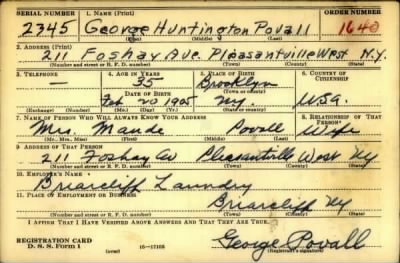 SERIAL NUMBER 1. NAME (Print) ORDER NUMBER
2345 George Huntington Povall 1640
(First) (Middle) (Last)
2. ADDRESS (Print)
211 Foshay Ave. Pleasantville West N.Y.
(Number and street or R. F. D. number) (Town) (County) (State)
3. TELEPHONE 4. AGE IN YEARS 5. PLACE OF BIRTH 6. COUNTRY OF CITIZENSHIP
— 35 Brooklyn
DATE OF BIRTH (Town or county)
Feb 20 1905 Ny. U.S.a.
(Exchange) (Number) (Mo.) (Day) (Yr.) (State or country)
7. NAME OF PERSON WHO WILL ALWAYS KNOW YOUR ADDRESS 8. RELATIONSHIP OF THAT PERSON
Mrs. Maude Povall Wife
(Mr., Mrs., Miss) (First) (Middle) (Last)
9. ADDRESS OF THAT PERSON
211 Foshay Av Pleasantville West Ny
(Number and street or R. F. D. number) (Town) (County) (State)
10. EMPLOYER'S NAME
Briarcliff Laundry
11. PLACE OF EMPLOYMENT OR BUSINESS
Briarcliff Ny
(Number and street or R. F. D. number) (Town) (County) (State)
I AFFIRM THAT I HAVE VERIFIED ABOVE ANSWERS AND THAT THEY ARE TRUE.
REGISTRATION CARD
D. S. S. FORM 1 (over) 16—17105
George Povall
(Registrant's signature)